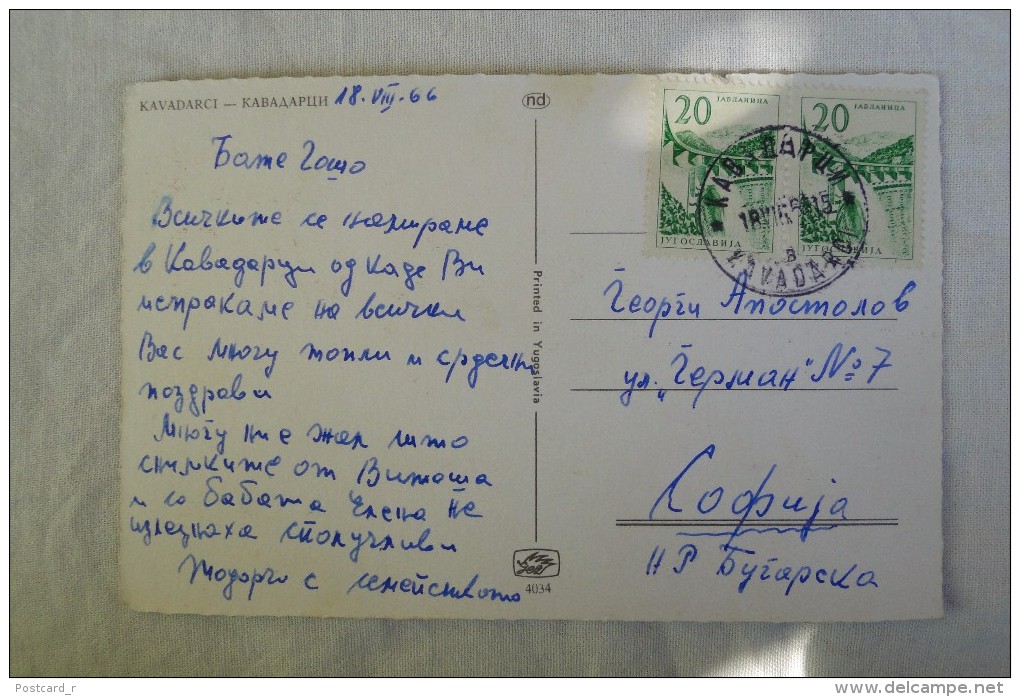 KAVADARCI — КАВАДАРЦИ 18.VIII.66
nd
Бате Гошо
Всичките се намираме
в Кавадарци од каде Ви
испракаме на всички
Вас многу топли и срдечни
поздрави
Многу ни е жал што
снимките от Витоша
и со бабата Елена не
излезнаха сполучливи
Тодорчо с семейството
Printed in Yugoslavia
4034
20 ЈАБЛАНИЦА
ЈУГОСЛАВИЈА
20 ЈАБЛАНИЦА
ЈУГОСЛАВИЈА
КАВАДАРЦИ
KAVADARCI
Георги Апостолов
ул. „Герман" № 7
Софија
НР Бугарска
Postcard_r
http://www.delcampe.net